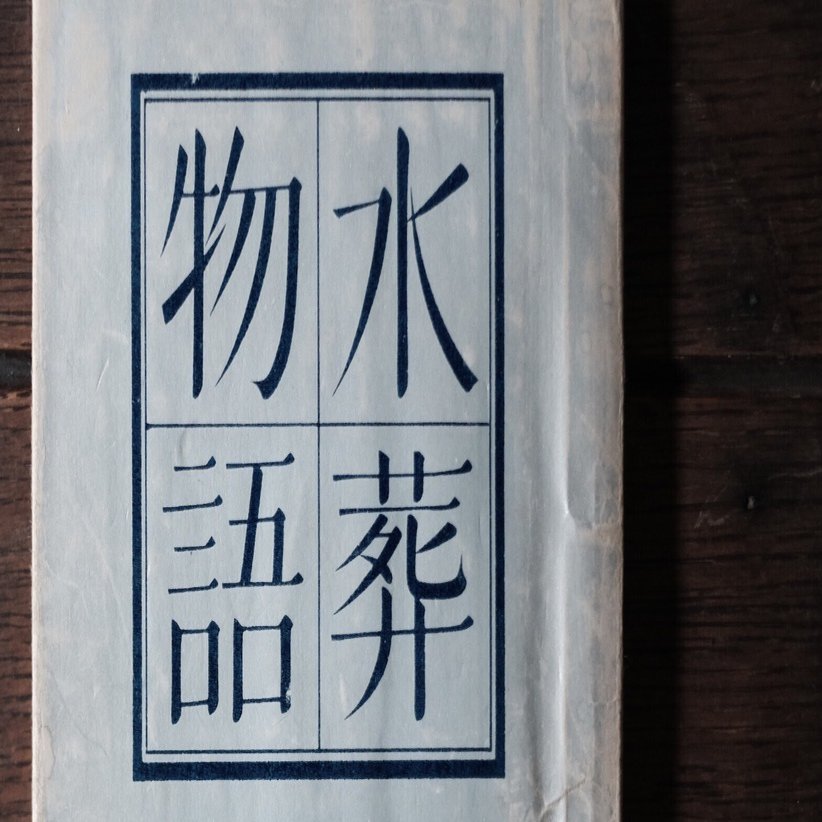 水葬
物語